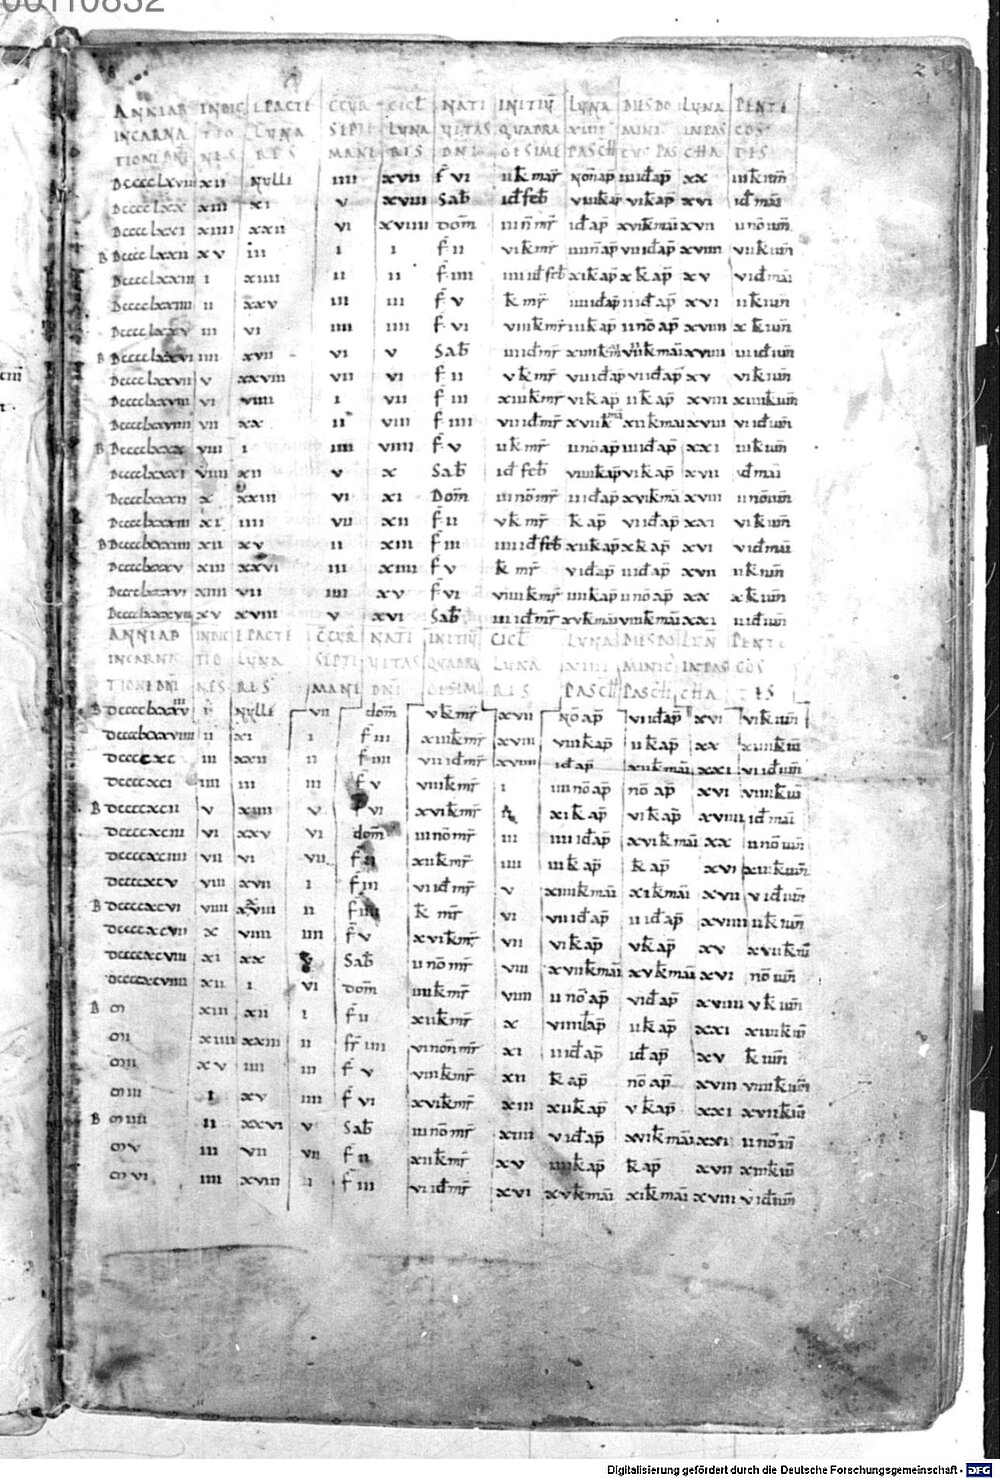 00110832
2
ANNI AB INDIC EPACTE CCUR CICL NATI INITIU LUNA DIES DO LUNA PENTE
INCARNA TIO LUNA SEPTI LUNA UITAS QUADRA XIIII MINI INPAS COS
TIONE DNI NES RES MANE RIS DNI GESIME PASCH CUS PAS CHA TES
Dcccclxviiii xii Nulle iiii xvii f vi iii k mar Non ap iii id ap xx iiii k iun
Dcccclxx xiii xi v xviii Sab id feb viii k ap vi k ap xvi id mai
Dcccclxxi xiiii xxii vi xviiii dom iii n mr id ap xvi k mai xvii ii no iun
B Dcccclxxii xv iii i i f ii vi k mr iiii n ap vii id ap xviiii vii k iun
Dcccclxxiii i xiiii ii ii f iiii iiii id feb xi k ap x k ap xv vi id mai
Dcccclxxiiii ii xxv iii iii f v k mr iiii id ap ii id ap xvi ii k iun
Dcccclxxv iii vi iiii iiii f vi viiii k mr iii k ap ii no ap xviiii x k iun
B Dcccclxxvi iiii xvii vi v Sab iii id mr xiiii k m viiii k mai xviiii iii id iun
Dcccclxxvii v xxviii vii vi f ii v k mr vii id ap vi id ap xv vi k iun
Dcccclxxviii vi viiii i vii f iii xiii k mr vi k ap ii k ap xviii xiiii k iun
Dcccclxxviiii vii xx ii viii f iiii vii id mr xvii k mai xii k mai xviii vi id iun
B Dcccclxxx viii i iiii viiii f v ii k mr ii no ap iii id ap xxi iii k iun
Dcccclxxxi viiii xii v x Sab id feb viiii k ap vi k ap xvii id mai
Dcccclxxxii x xxiii vi xi Dom iii no mr ii id ap xvi k mai xviii ii no iun
Dcccclxxxiii xi iiii vii xii f ii v k mr k ap vi id ap xxi vi k iun
B Dcccclxxxiiii xii xv ii xiii f iii iiii id feb xii k ap x k ap xvi vi id mai
Dcccclxxxv xiii xxvi iii xiiii f v k mr v id ap ii id ap xvii ii k iun
Dcccclxxxvi xiiii vii iiii xv f vi viiii k mr iiii k ap ii no ap xx x k iun
Dcccclxxxvii xv xviii v xvi Sab iii id mr xv k mai viii k mai xxi iii id iun
ANNI AB INDIC EPACTE CCUR NATI INITIU CICL LUNA DIES DO LUN PENTE
INCARNA TIO LUNA SEPTI UITAS QUADRA LUNA XIIII MINIC INPAS COS
TIONE DNI NES RES MANE DNI GESIME RIS PASCH PASCH CHA TES
B Dcccclxxxv i Nulle vii dom v k mr xvii no ap vi id ap xvi vi k iun
dcccclxxxviiii ii xi i f iii xiii k mr xviii viii k ap ii k ap xx xiiii k iu
dccccxc iii xxii ii f iiii vii id mr xviiii id ap xii k mai xxi vi id iun
dccccxci iiii iii iii f v viiii k mr i iiii no ap no ap xvi viiii k iu
B dccccxcii v xiiii v f vi xvi k mr ii xi k ap vi k ap xviiii id mai
dccccxciii vi xxv vi dom iii no mr iii iiii id ap xvi k mai xx ii no iun
dccccxciiii vii vi vii f ii xii k mr iiii iii k ap k ap xvi xiii k iun
dccccxcv viii xvii i f iii vi id mr v xiiii k mai xi k mai xvii v id iun
B dccccxcvi viiii xxviii ii f iiii k mr vi vii id ap ii id ap xviiii ii k iun
dccccxcvii x viiii iiii f v xvi k mr vii vi k ap v k ap xv xvii k iu
dccccxcviii xi xx v Sab ii no mr viii xvii k mai xv k mai xvi no iun
dccccxcviiii xii i vi dom iiii k mr viiii ii no ap v id ap xviiii v k iun
B m xiii xii i f ii xii k mr x viiii k ap ii k ap xxi xiiii k iu
mi xiiii xxiii ii fr iiii vi non mr xi ii id ap id ap xv k iun
mii xv iiii iii f v viii k mr xii k ap no ap xviii viiii k iun
miii i xv iiii f vi xvi k mr xiii xii k ap v k ap xxi xvii k iu
B miiii ii xxvi v Sab iii no mr xiiii v id ap xvi k mai xxi ii no iu
mv iii vii vii f ii xii k mr xv iiii k ap k ap xvii xiii k iu
mvi iiii xviii i f iii vi id mr xvi xv k mai xi k mai xviii v id iun
Digitalisierung gefördert durch die Deutsche Forschungsgemeinschaft - DFG